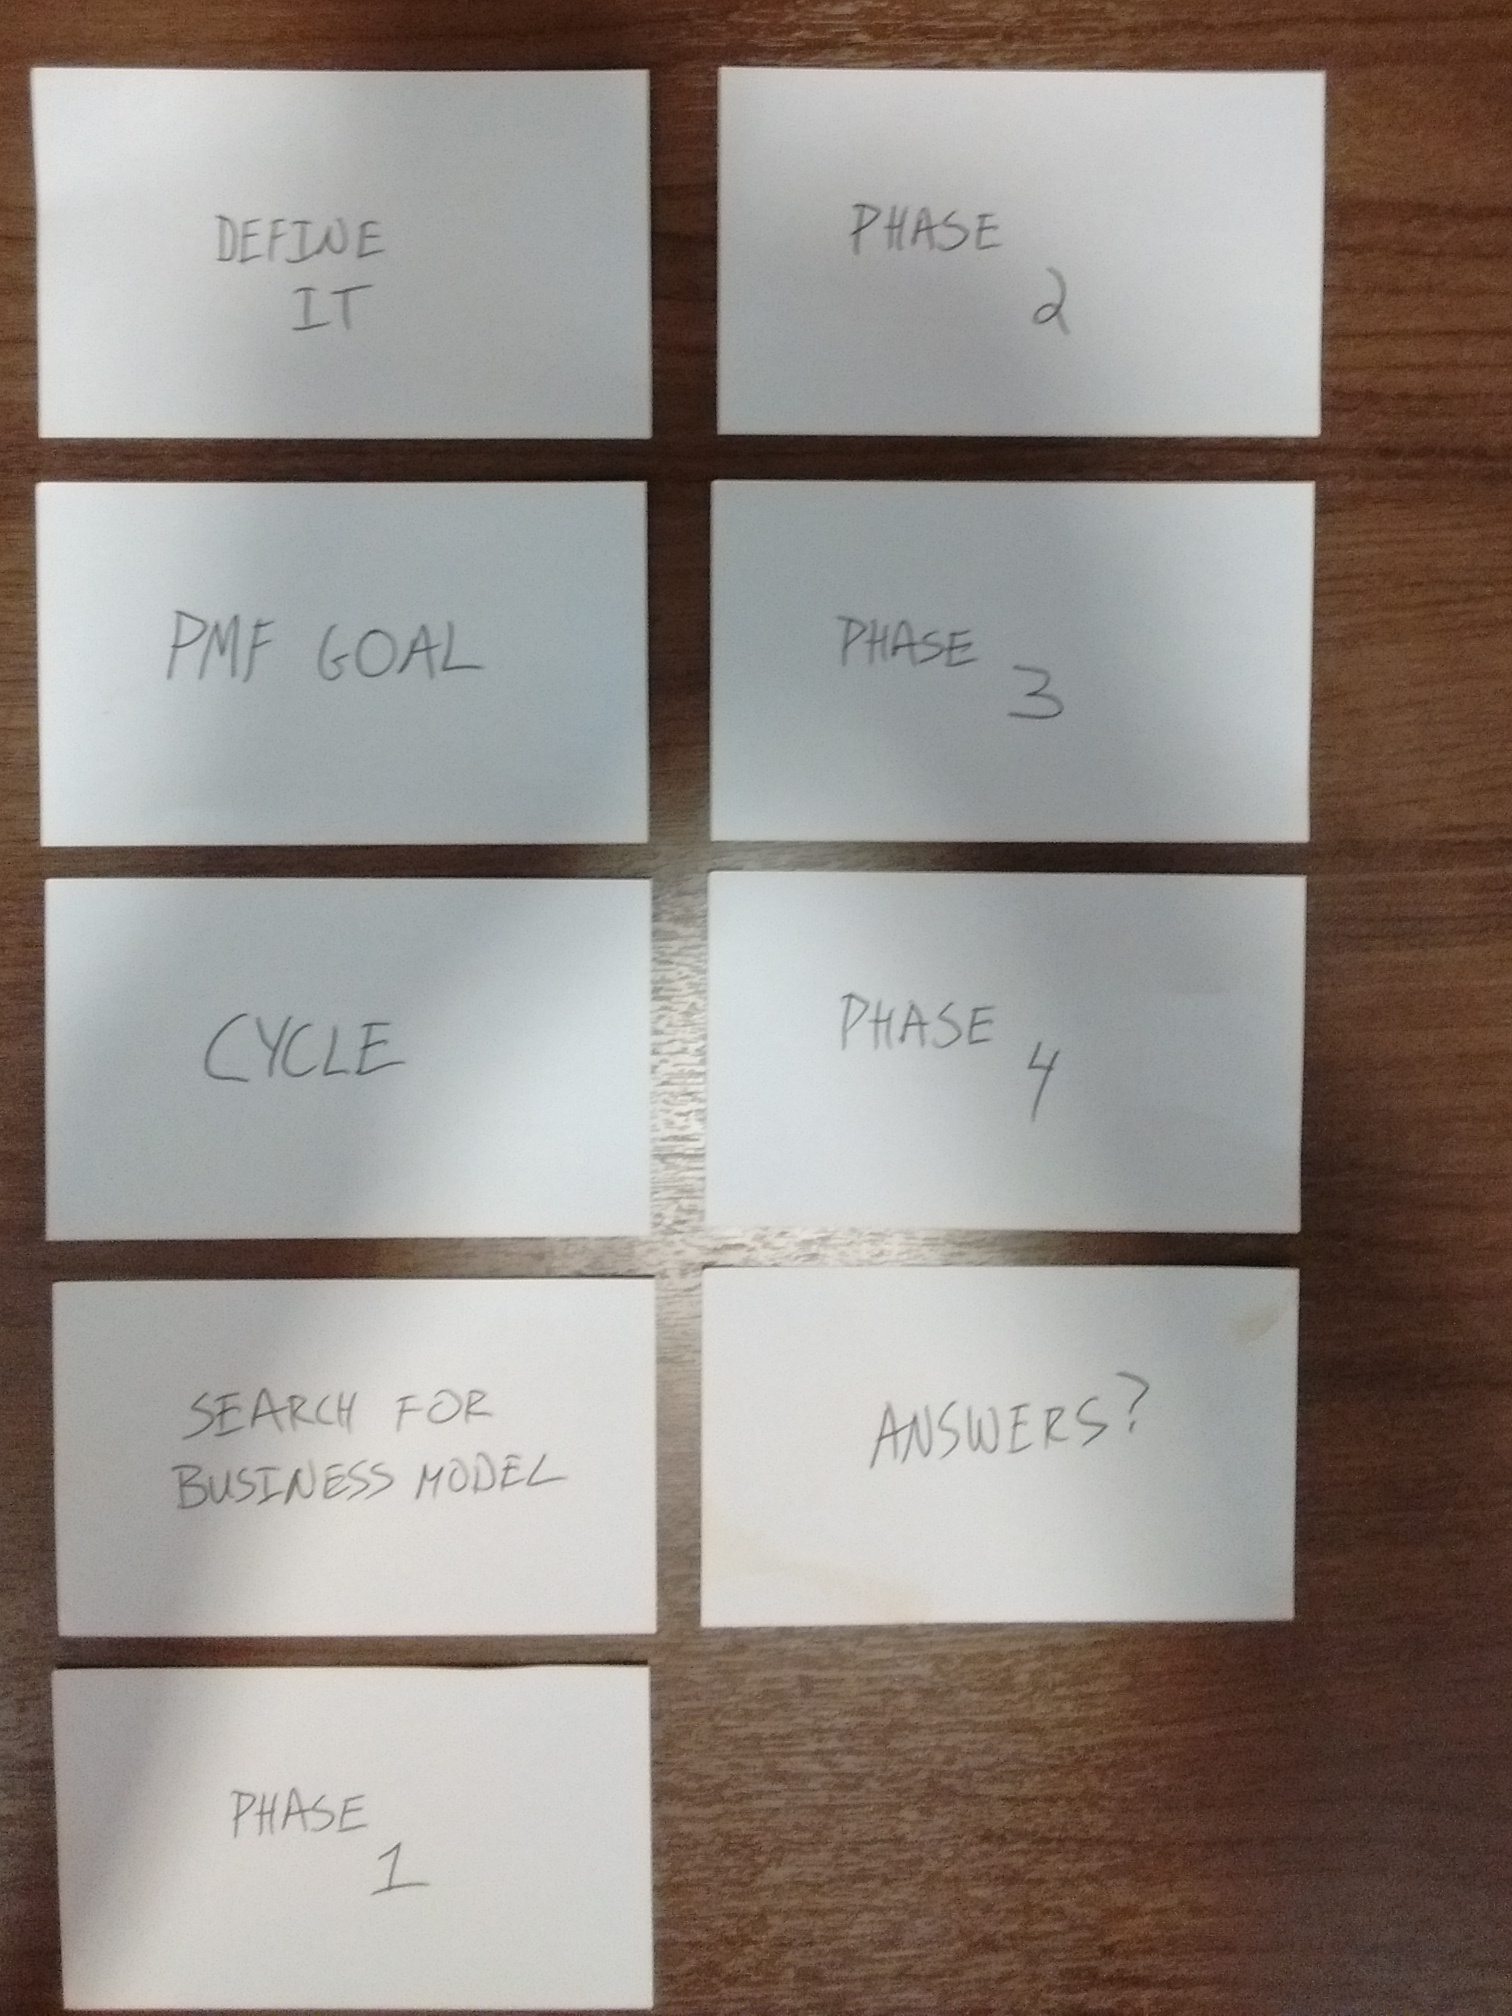 DEFINE
IT
PMF GOAL
CYCLE
SEARCH FOR
BUSINESS MODEL
PHASE
1
PHASE
2
PHASE
3
PHASE
4
ANSWERS?